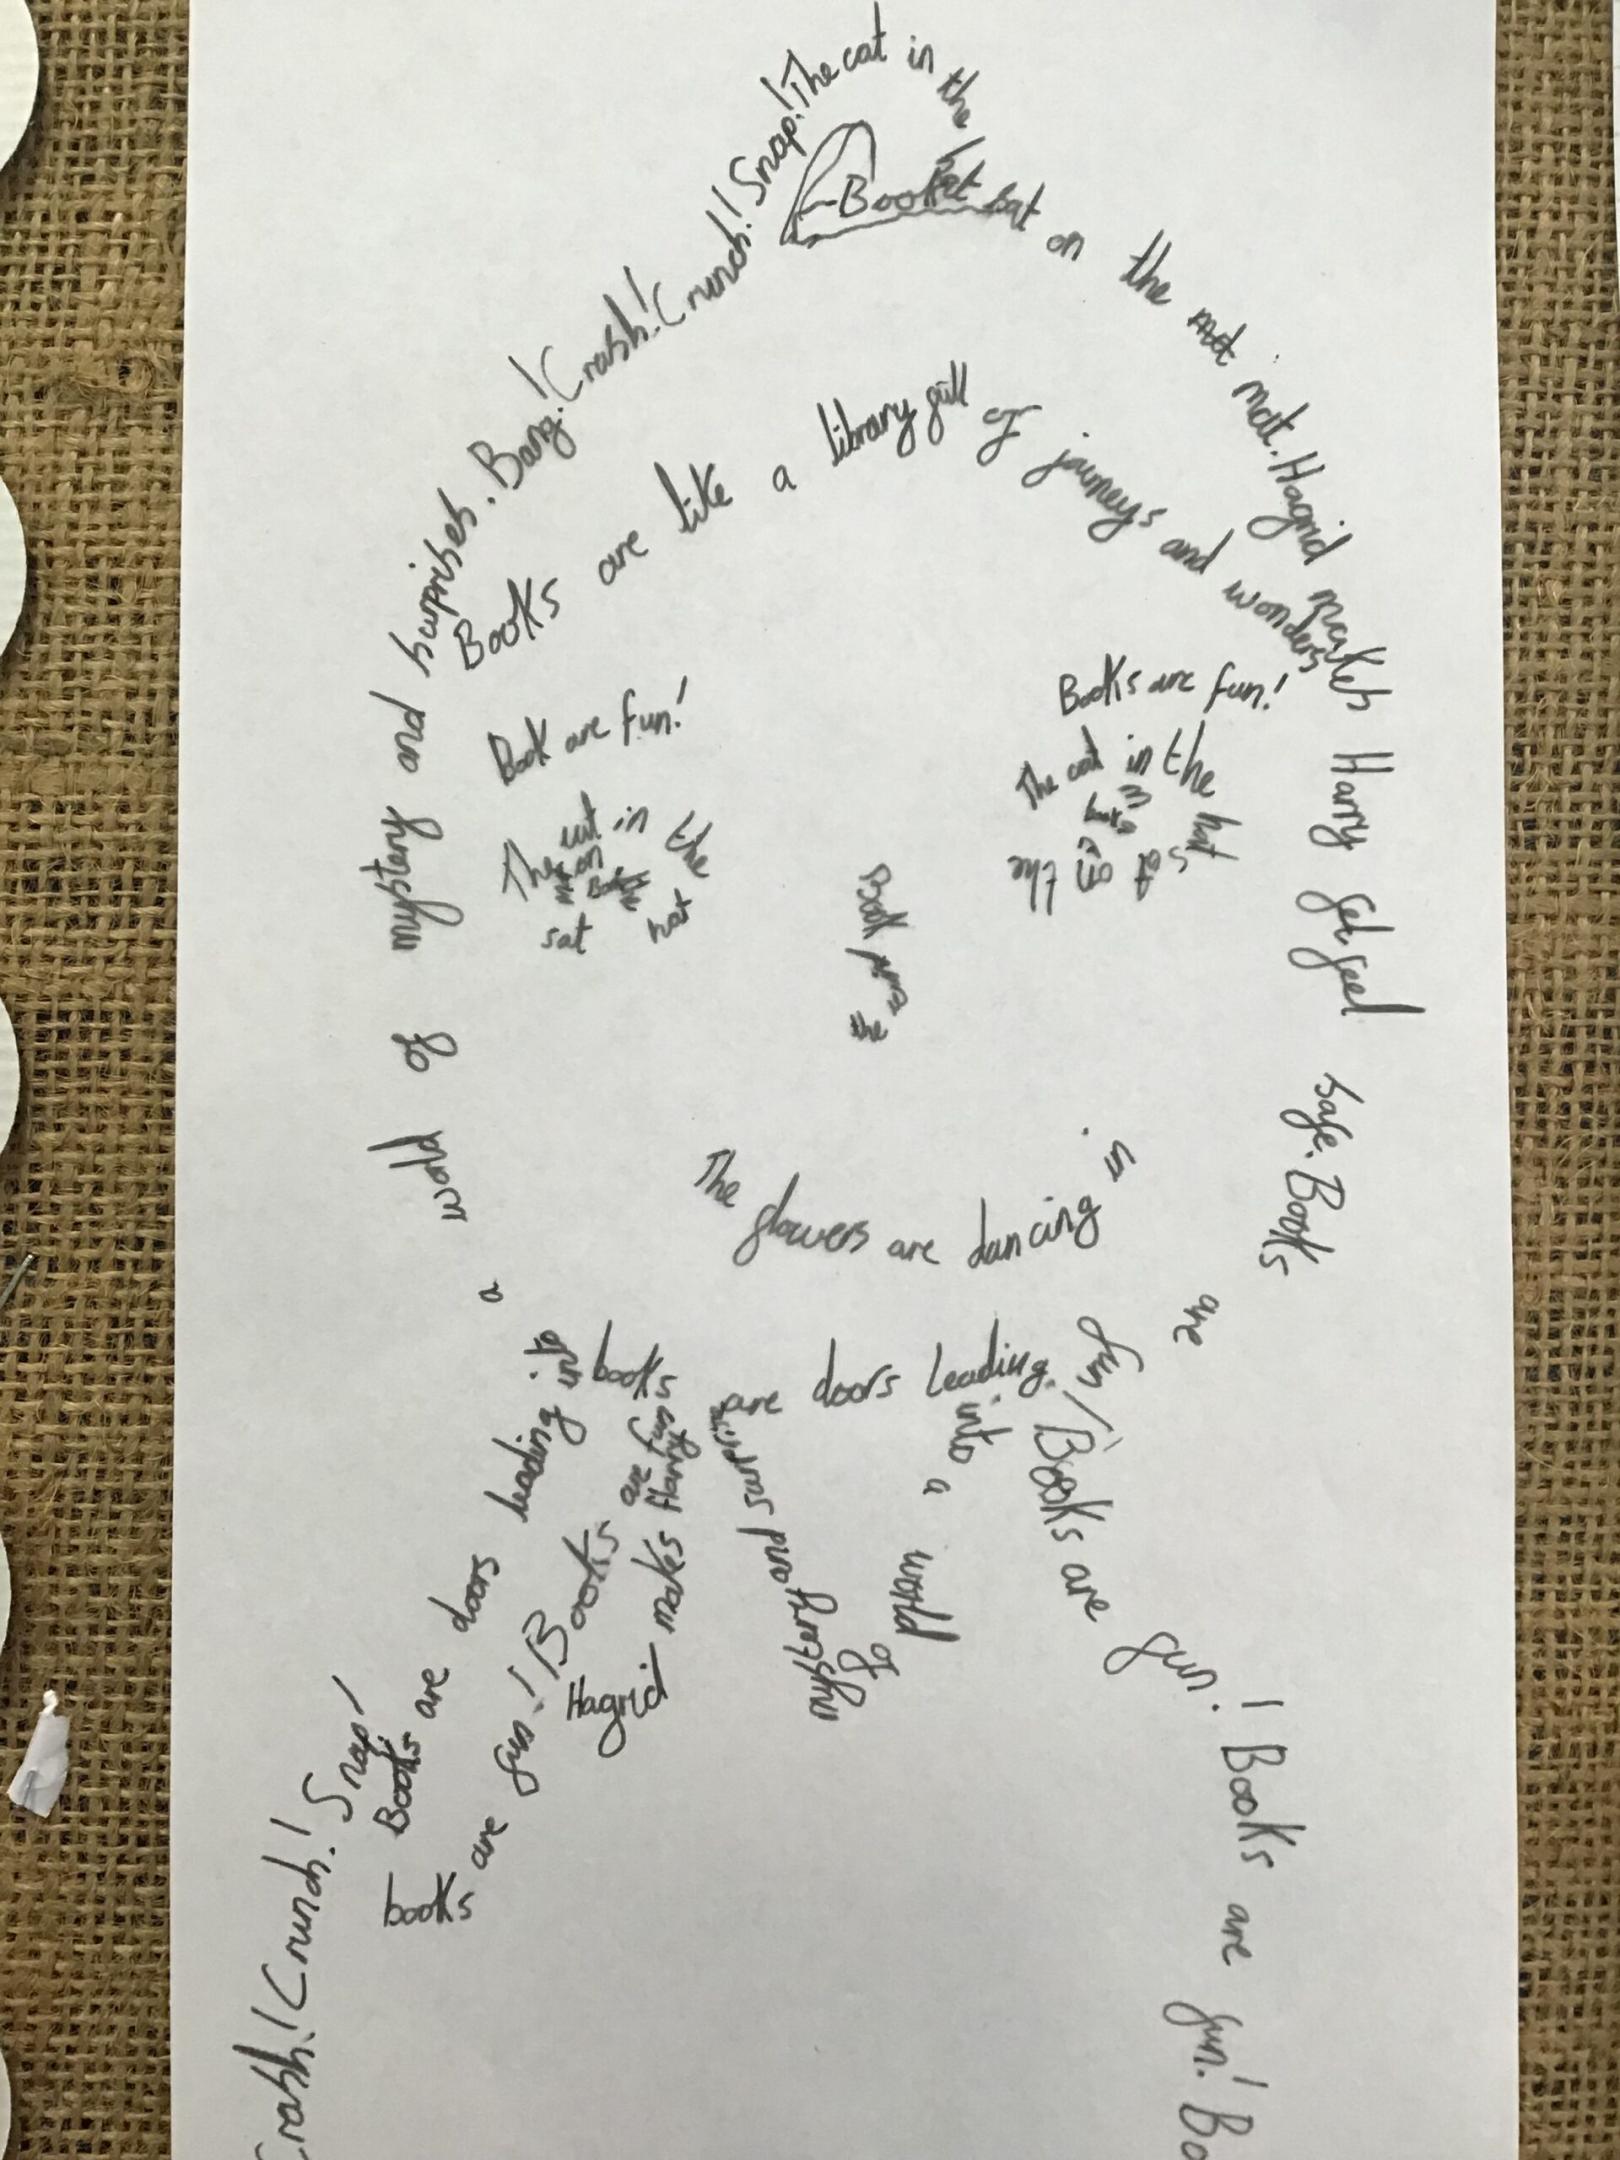 Books are doors leading into a world of mystery and surprises. Bang! Crash! Crunch! Snap! The cat in the hat sat on the mat. Hagrid makes Harry feel safe. Books are fun! Books are fun! Books are fun! Bo
Book
Books are like a library full of journeys and wonders
Book are fun!
Books are fun!
The cat in the hat sat on
The cat in the hat sat on the
Book
the
The flowers are dancing in
books are doors leading into a world of mystery and surprises
books are fun! Books are fun
Hagrid makes Harry
Crash! Crunch! Snap!